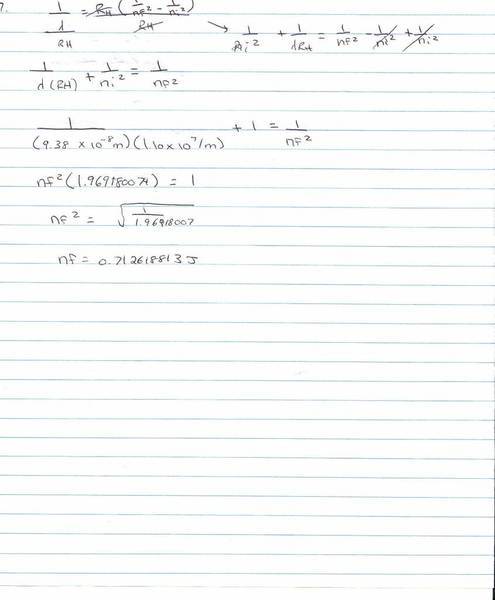 7. 1/λ / RH = RH (1/nf² - 1/ni²) / RH → 1/ni² + 1/λRH = 1/nf² - 1/ni² + 1/ni²
1/λ(RH) + 1/ni² = 1/nf²
1/(9.38 x 10⁻⁸m)(1.10x10⁷/m) + 1 = 1/nf²
nf² (1.969180074) = 1
nf² = √1/1.96918007
nf = 0.712618813 J